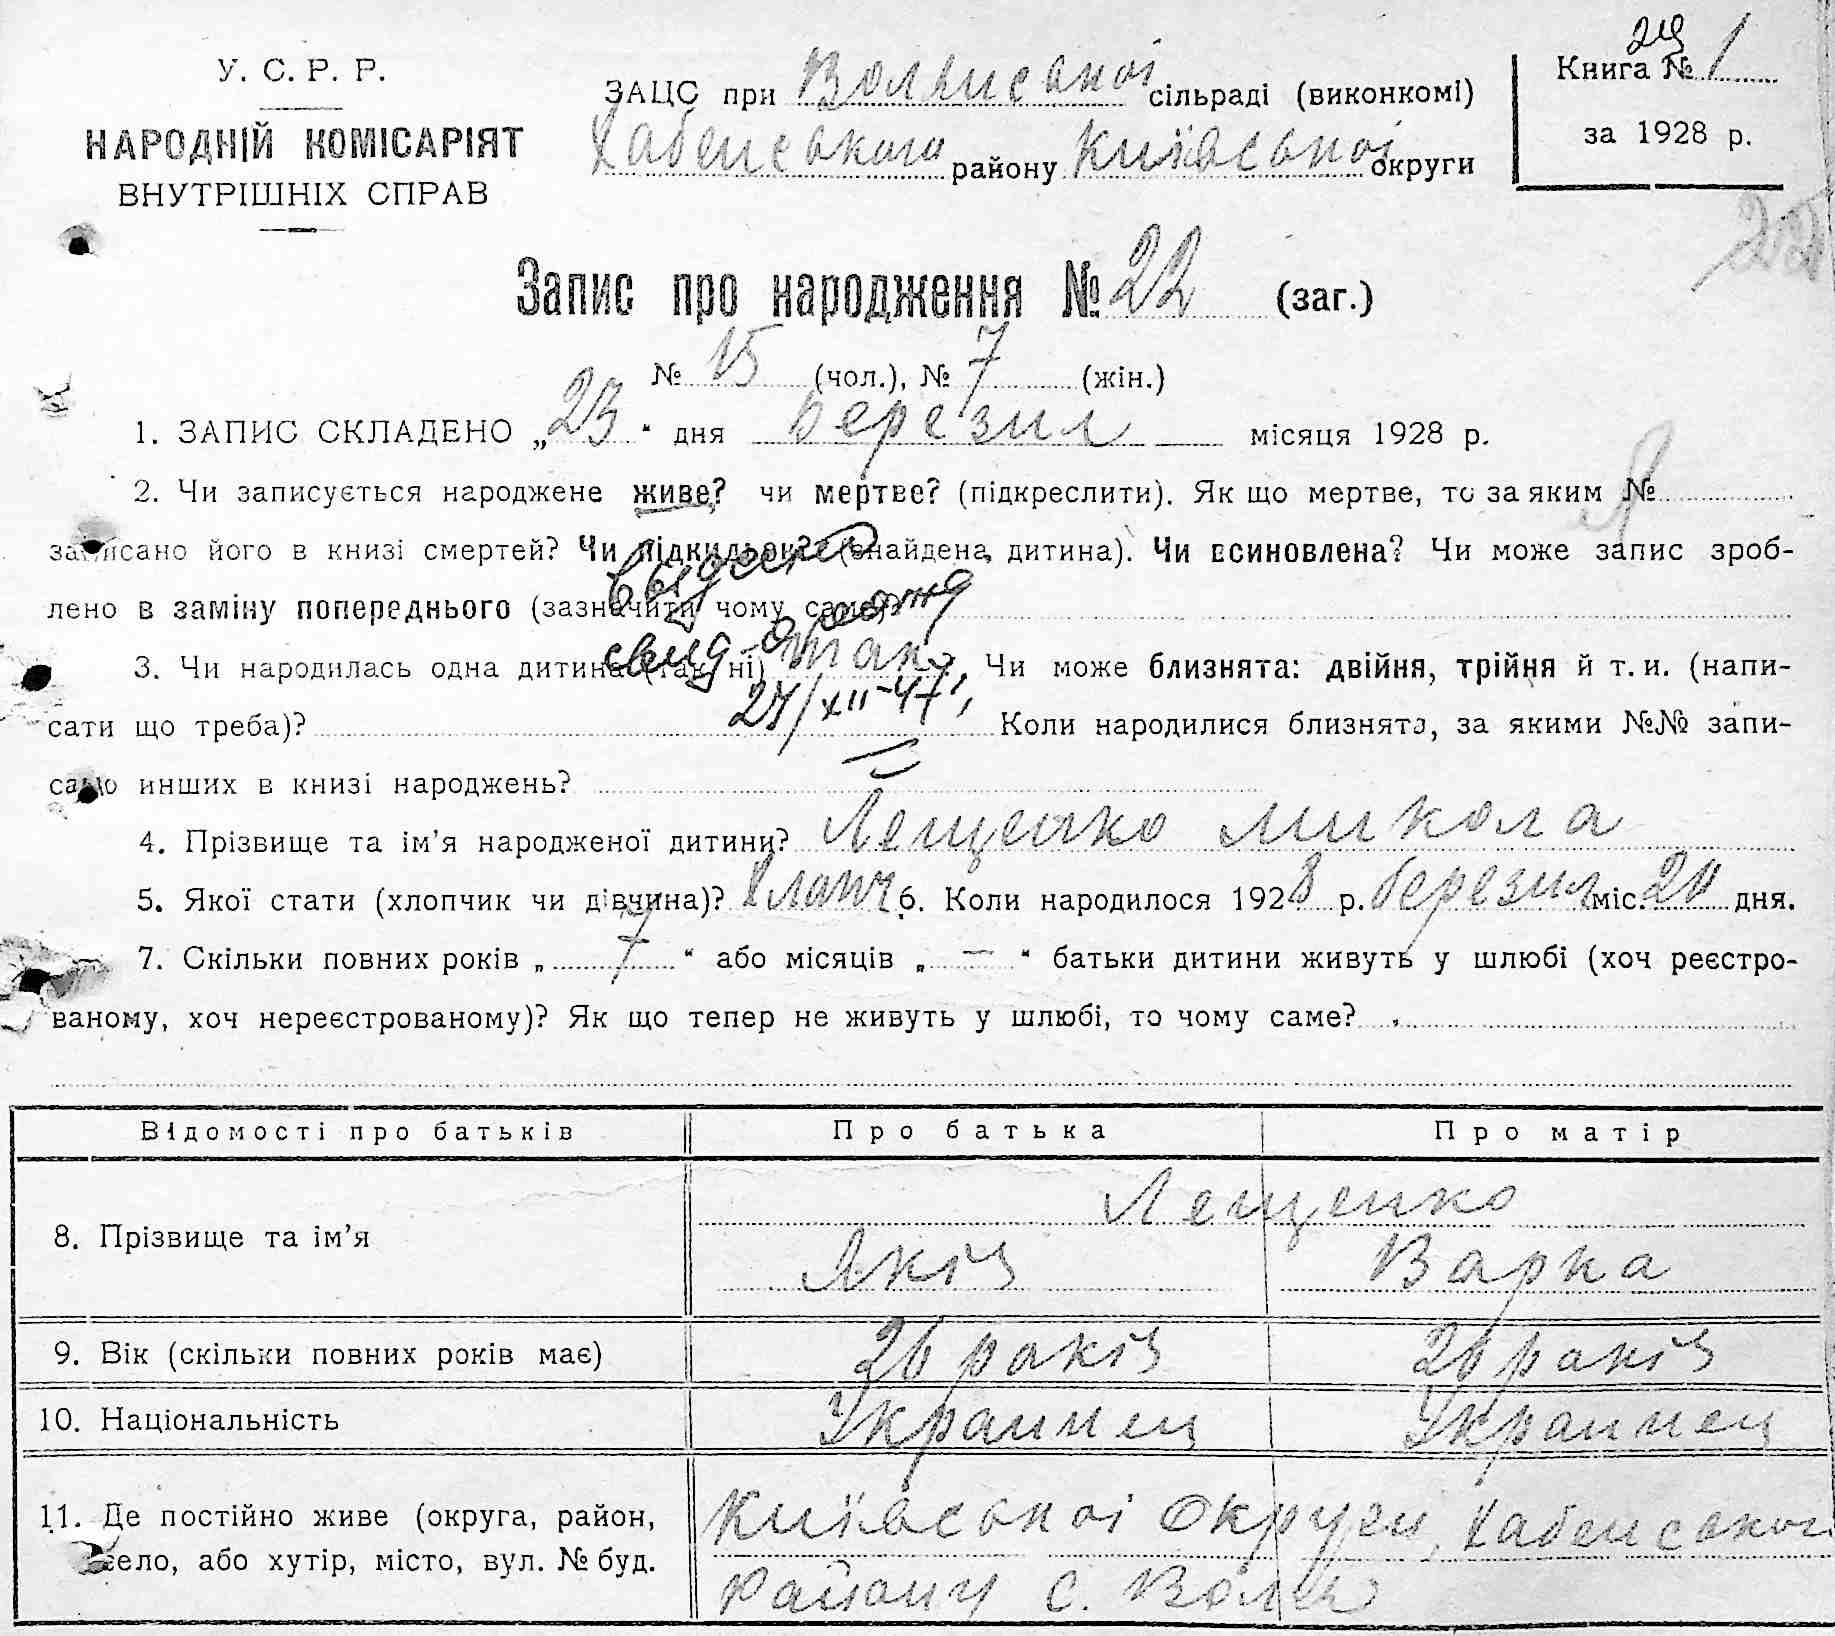 У. С. Р. Р.
НАРОДНІЙ КОМІСАРІЯТ
ВНУТРІШНІХ СПРАВ
ЗАЦС при сільраді (виконкомі)
Хабенського району Київської округи
Книга № 1
за 1928 р.
22
Запис про народження № 22 (заг.)
№ 15 (чол.), № 7 (жін.)
1. ЗАПИС СКЛАДЕНО „23“ дня березня місяця 1928 р.
2. Чи записується народжене живе? чи мертве? (підкреслити). Як що мертве, то за яким №
записано його в книзі смертей? Чи підкидьок? (знайдена дитина). Чи всиновлена? Чи може запис зроб-
лено в заміну попереднього (зазначити чому саме)
3. Чи народилась одна дитина (так, ні) так. Чи може близнята: двійня, трійня й т. и. (напи-
сати що треба)? Коли народилися близнята, за якими №№ запи-
сано инших в книзі народжень?
27/XII-47
4. Прізвище та ім’я народженої дитини? Лещенко Микола
5. Якої стати (хлопчик чи дівчина)? Хлопч 6. Коли народилося 1928 р. березня міс. 20 дня.
7. Скільки повних років „ 7 “ або місяців „ — “ батьки дитини живуть у шлюбі (хоч реєстро-
ваному, хоч нереєстрованому)? Як що тепер не живуть у шлюбі, то чому саме?
Відомості про батьків Про батька Про матір
8. Прізвище та ім’я Лещенко
Яків Варка
9. Вік (скільки повних років має) 26 років 26 років
10. Національність Украинец Украинец
11. Де постійно живе (округа, район,
село, або хутір, місто, вул. № буд.
Київської Округи, Хабенського
Району с.